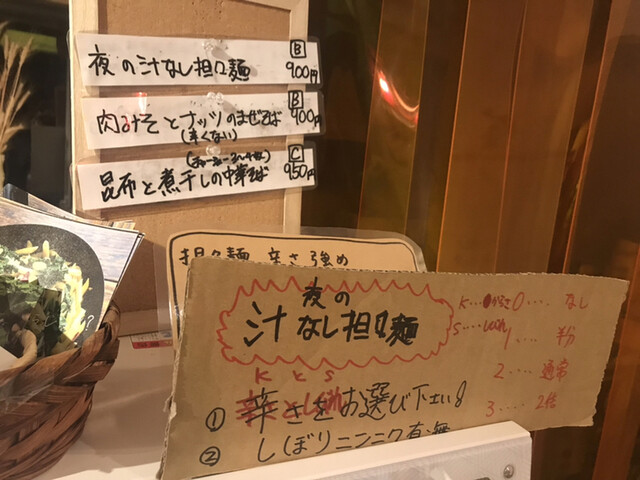 夜の汁なし担々麺 B 900円
肉みそとナッツのまぜそば B 900円
(辛くない)
昆布と煮干しの中華そば C 950円
担々麺 辛さ強め
夜の
汁なし担々麺
K…辛さ 0…. なし
S…しびれ 1…. 半分
2…. 通常
3…. 2倍
K と S
① 辛さとしびれをお選び下さい!
② しぼりニンニク有無